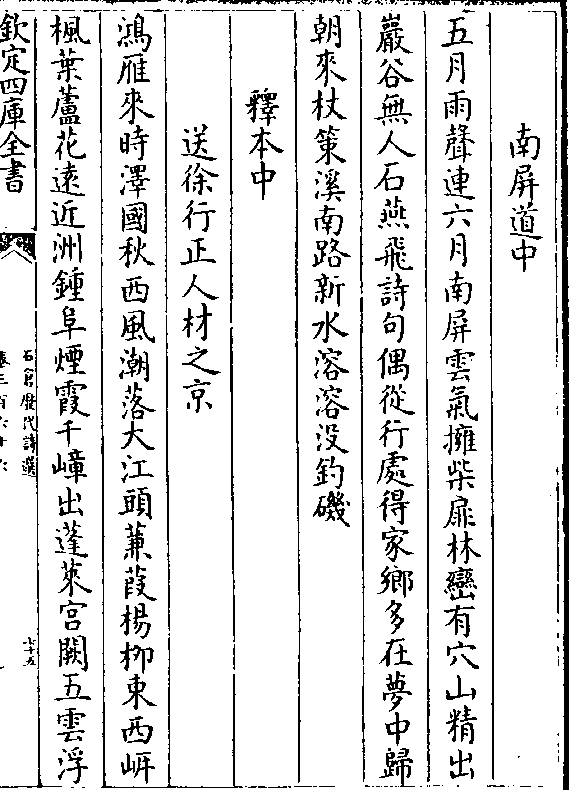 南屏道中
五月雨聲連六月南屏雲氣擁柴扉林巒有穴山精出
巖谷無人石燕飛詩句偶從行處得家鄉多在夢中歸
朝來杖策溪南路新水溶溶没釣磯
釋本中
送徐行正人材之京
鴻雁來時澤國秋西風潮落大江頭蒹葭楊柳東西岍
楓葉蘆花遠近洲鍾阜煙霞千嶂出蓬萊宫闕五雲浮
欽定四庫全書
石倉歴代詩選
卷三百六十六
七十五